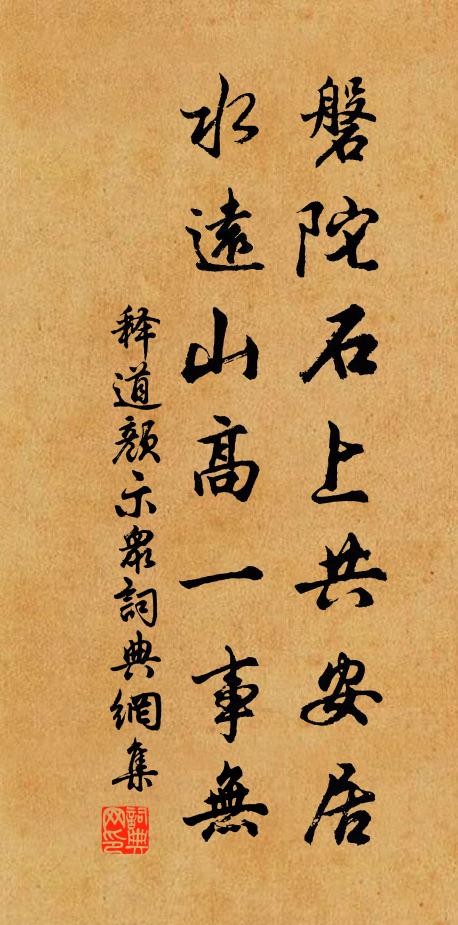 磐陀石上共安居
水遠山高一事無
释道颜示眾詞典網集
詞典网印